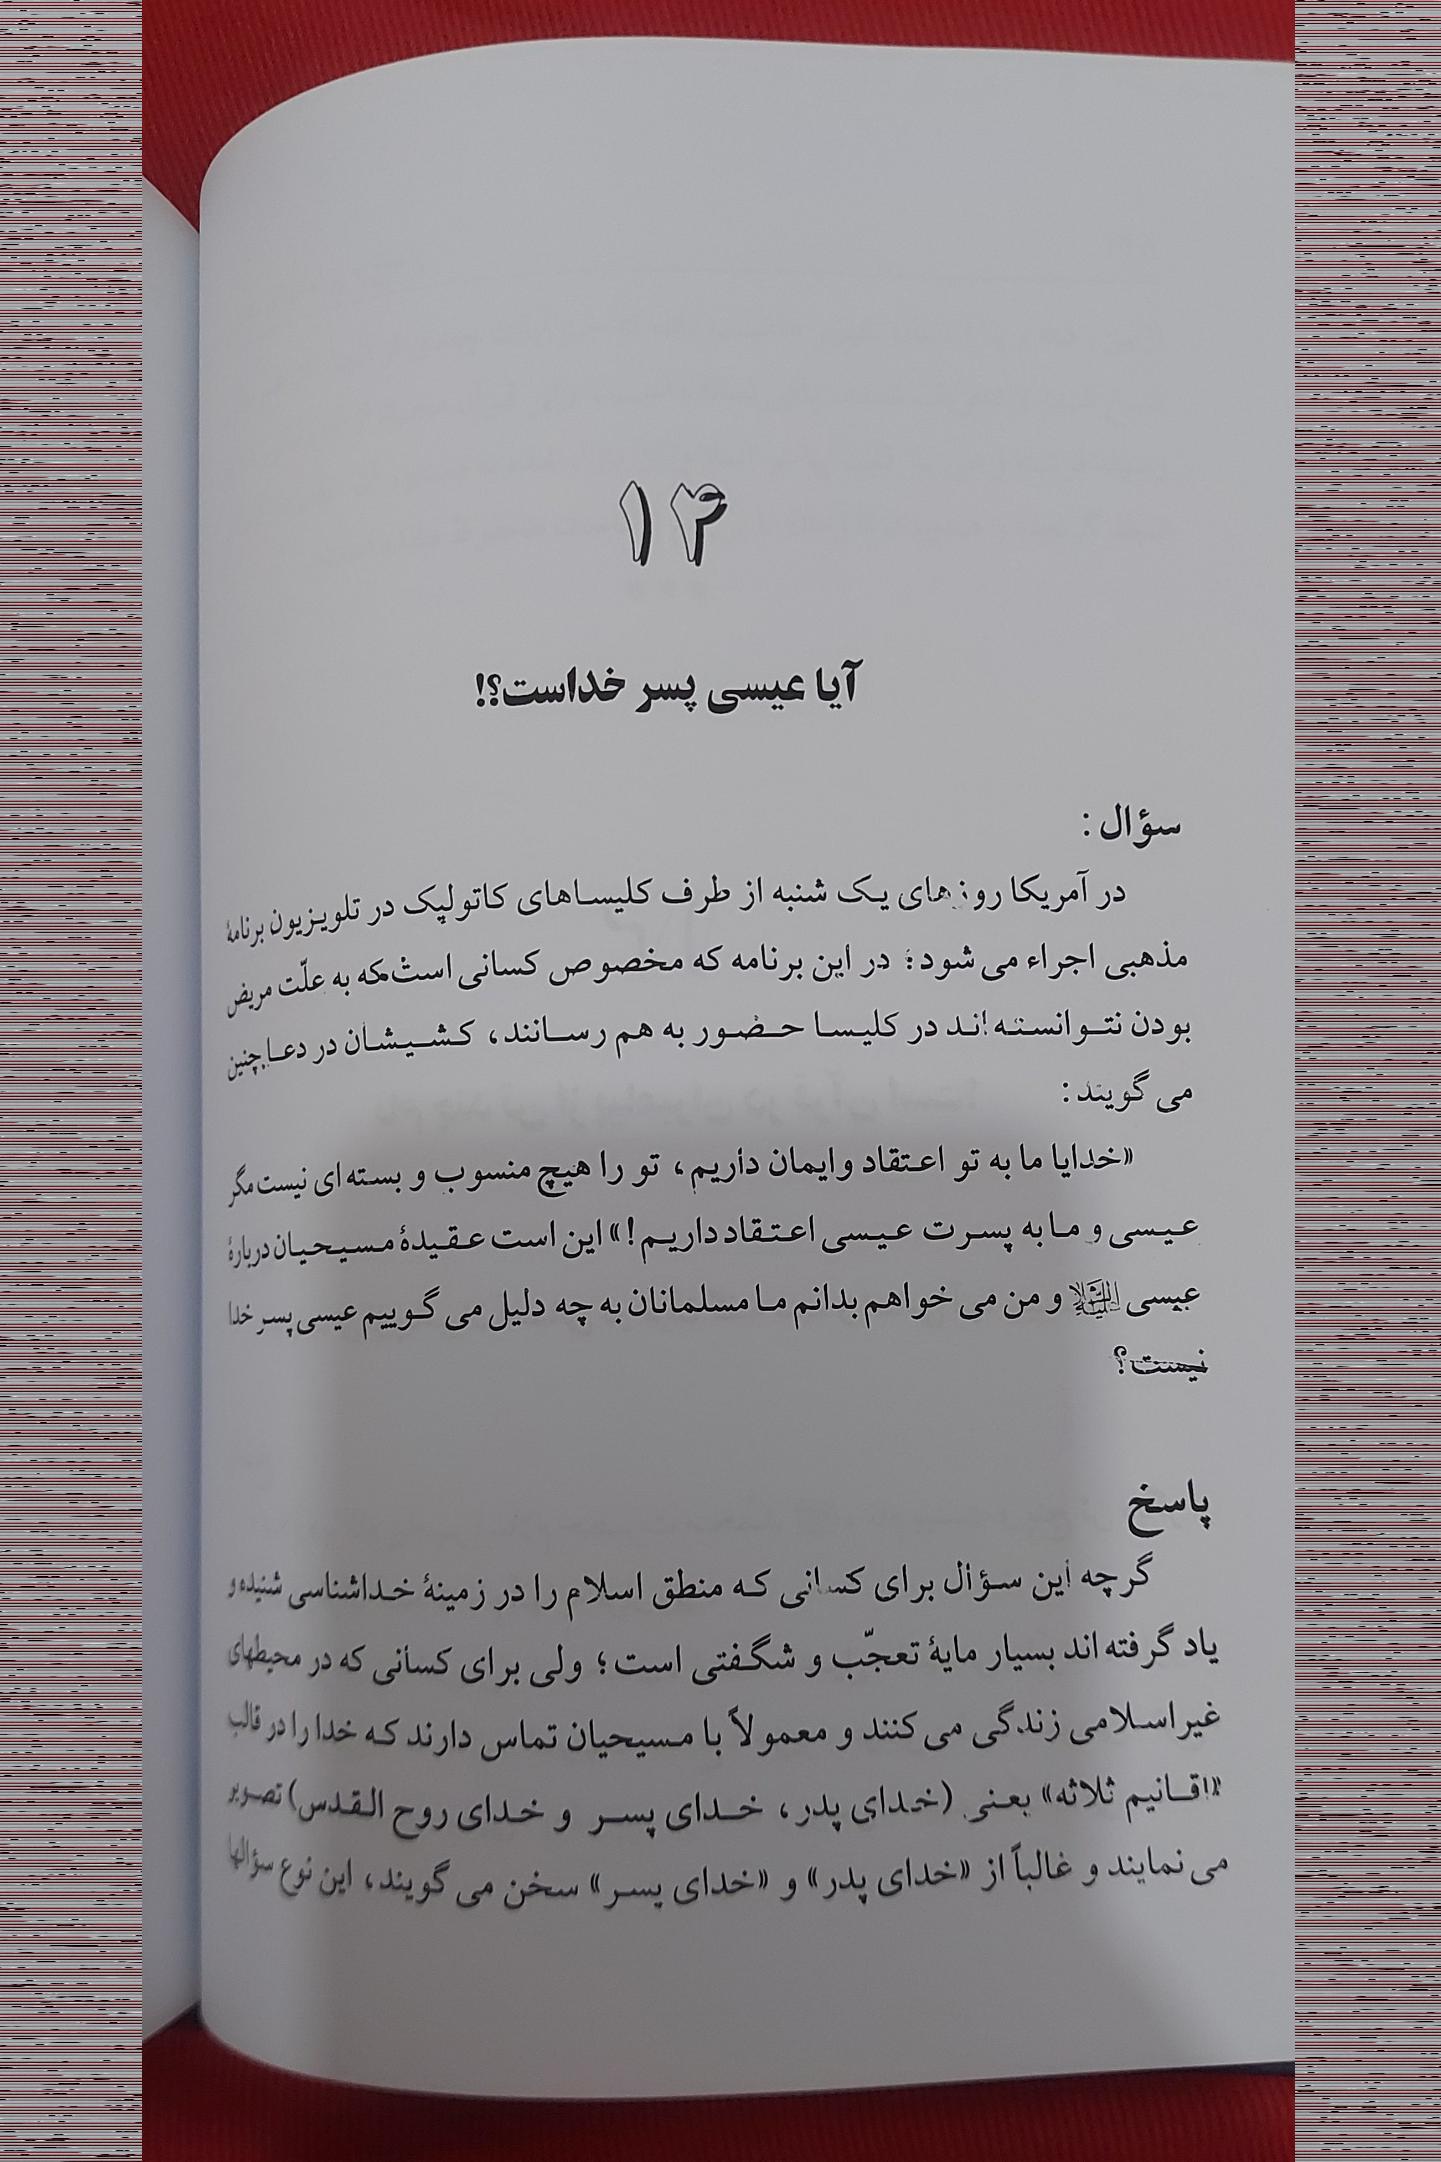 ۱۴
آیا عیسی پسر خداست؟!
سؤال :
در آمریکا روزهای یک شنبه از طرف کلیساهای کاتولیک در تلویزیون برنامهٔ
مذهبی اجراء می شود؛ در این برنامه که مخصوص کسانی است که به علّت مریض
بودن نتوانسته اند در کلیسا حضور به هم رسانند، کشیشان در دعا چنین
می گویند :
«خدایا ما به تو اعتقاد وایمان داریم، تو را هیچ منسوب و بسته ای نیست مگر
عیسی و ما به پسرت عیسی اعتقاد داریم!» این است عقیدهٔ مسیحیان دربارهٔ
عیسی علیه‌السلام و من می خواهم بدانم ما مسلمانان به چه دلیل می گوییم عیسی پسر خدا
نیست؟
پاسخ
گرچه این سؤال برای کسانی که منطق اسلام را در زمینهٔ خداشناسی شنیده و
یاد گرفته اند بسیار مایهٔ تعجّب و شگفتی است؛ ولی برای کسانی که در محیطهای
غیراسلامی زندگی می کنند و معمولاً با مسیحیان تماس دارند که خدا را در قالب
«اقانیم ثلاثه» یعنی (خدای پدر، خدای پسر و خدای روح القدس) تصویر
می نمایند و غالباً از «خدای پدر» و «خدای پسر» سخن می گویند، این نوع سؤالها